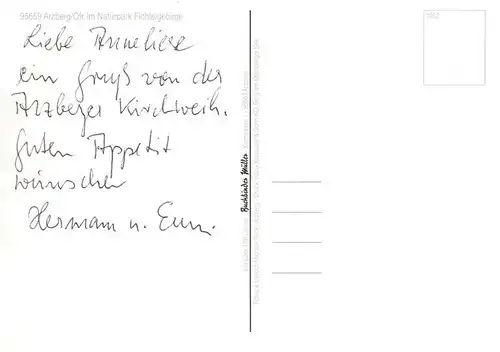 95659 Arzberg/Ofr. im Naturpark Fichtelgebirge
Liebe Anneliese
ein Gruß von der
Arzberger Kirchweih.
Guten Appetit
wünschen
Hermann u.
Buchbinder Müller